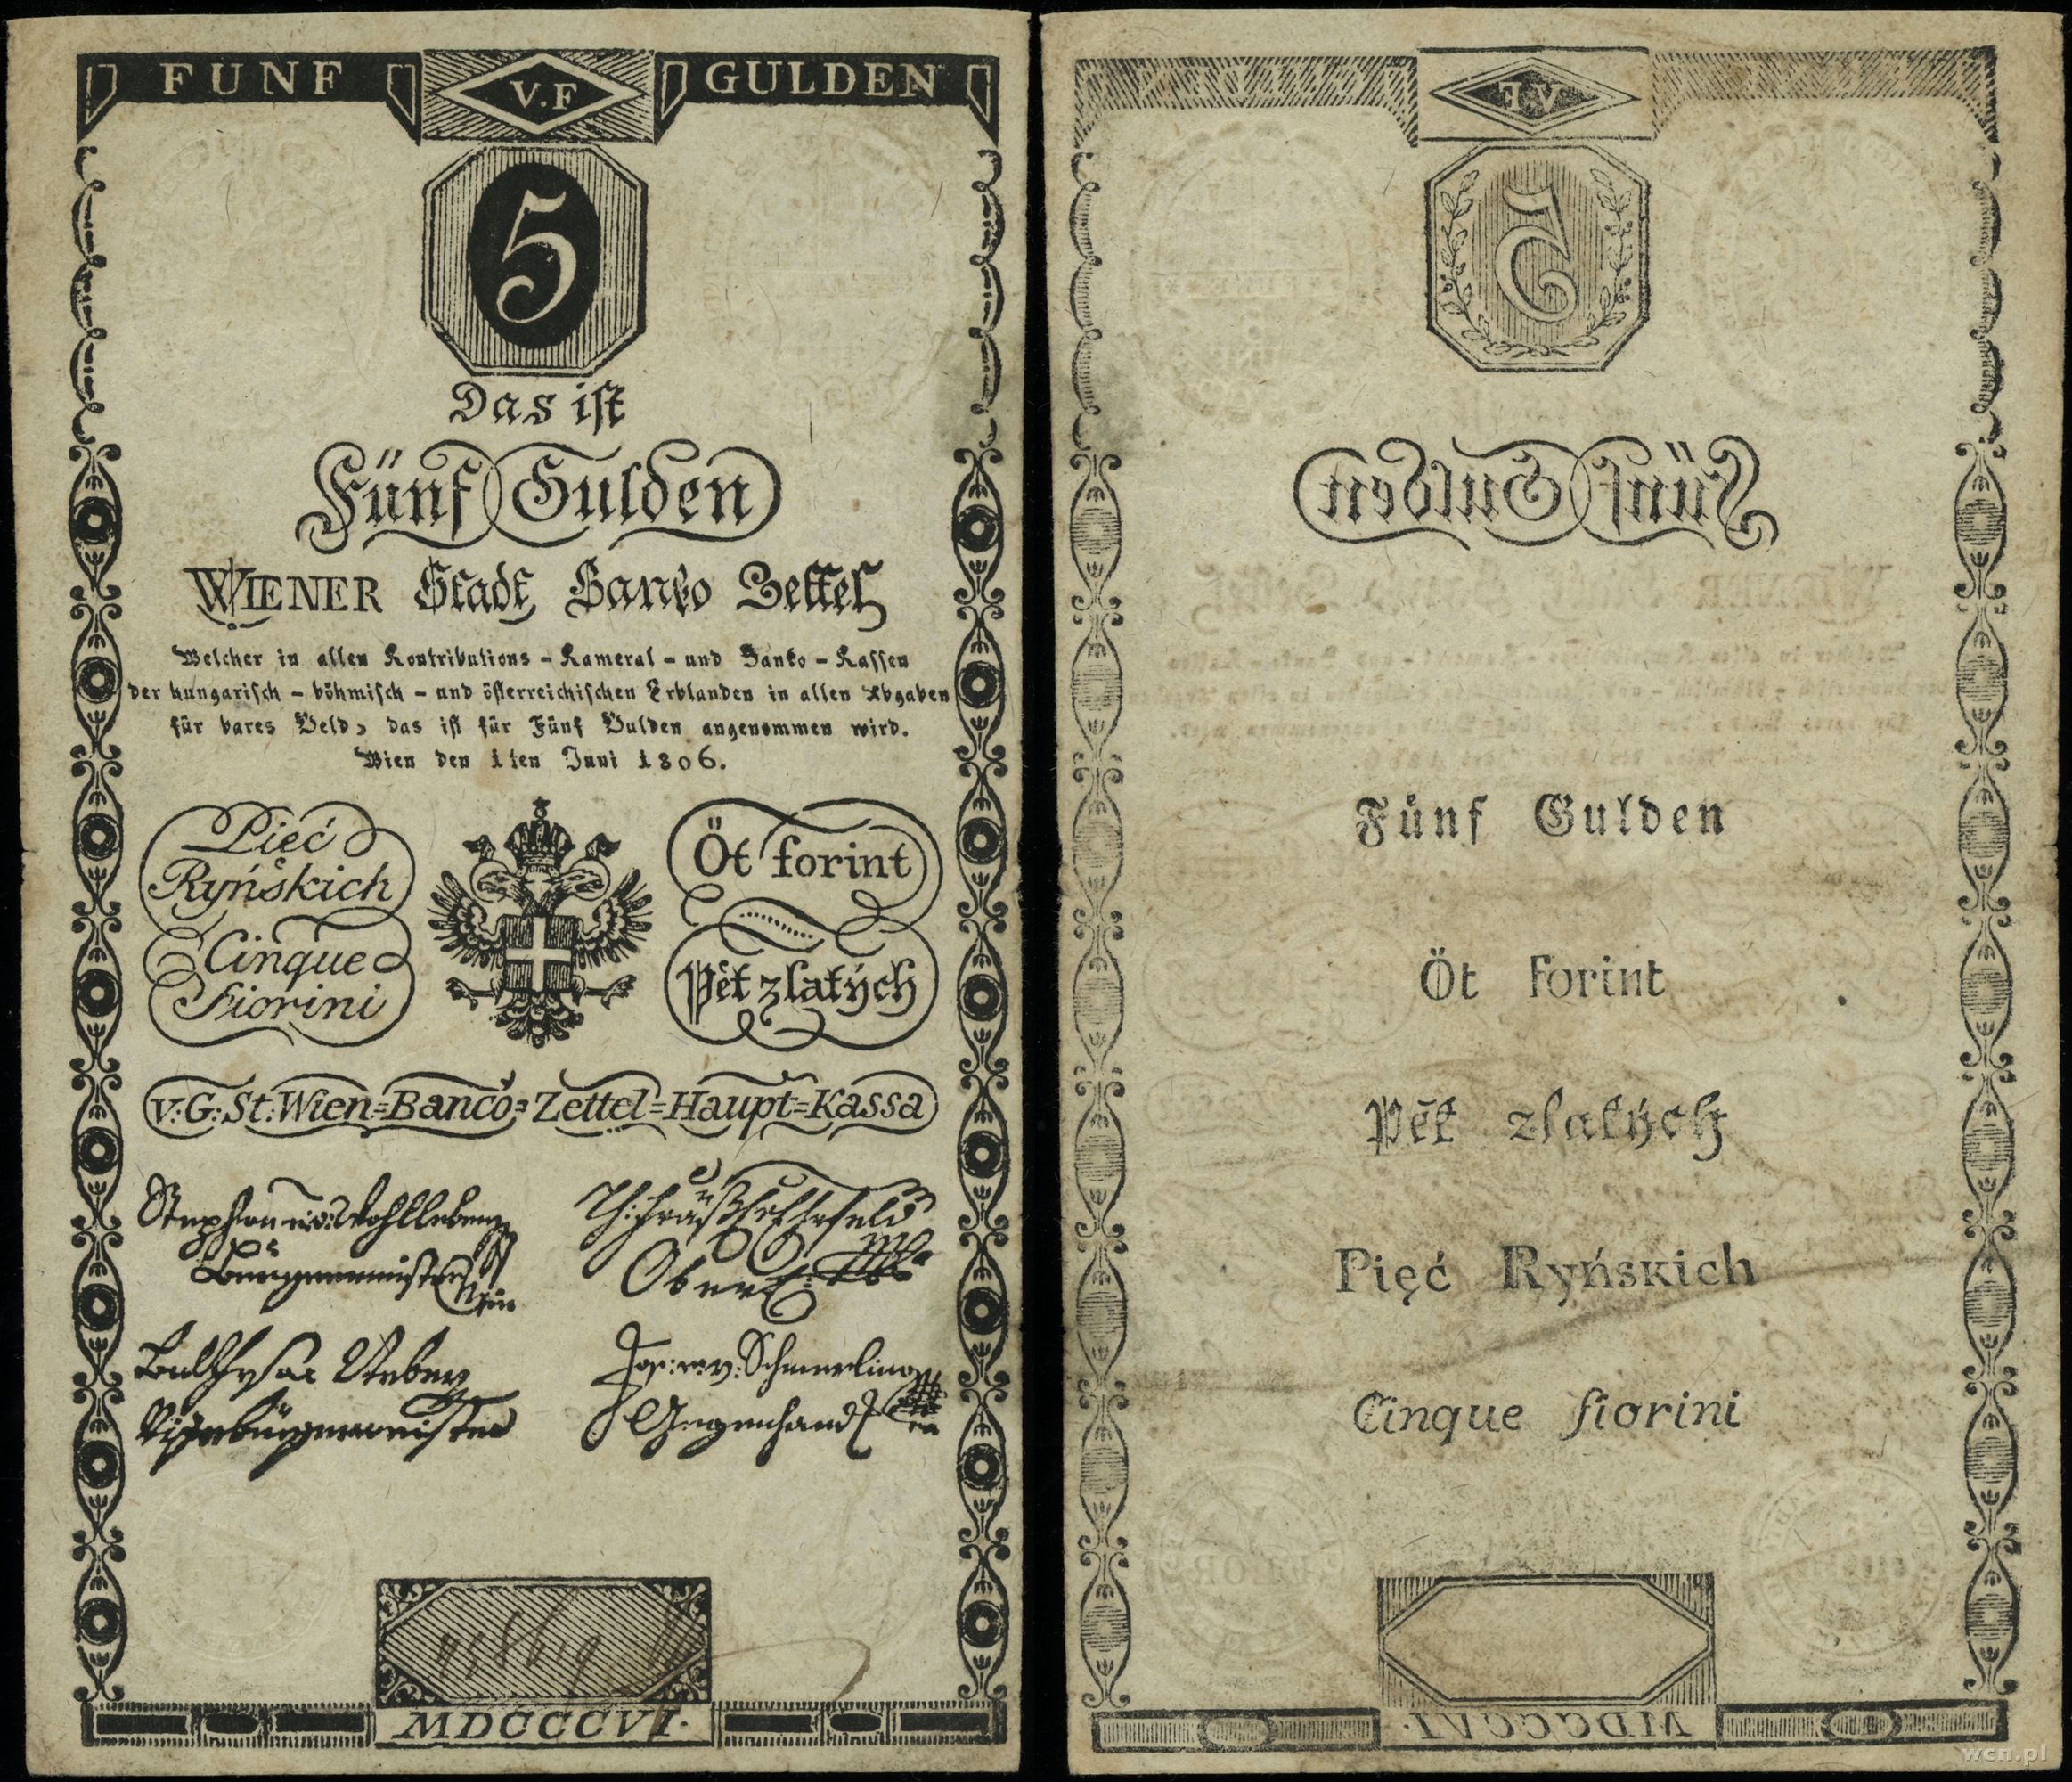 FUNF
V.F
GULDEN
5
Das ist
Fünf Gulden
WIENER Stadt Banko Zettel
Welcher in allen Kontributions - Kameral - und Banko - Kassen
der hungarisch - böhmisch - und österreichischen Erblanden in allen Abgaben
für bares Geld, das ist für Fünf Gulden angenommen wird.
Wien den 1ten Juni 1806.
Pięć
Ryńskich
Cinque
fiorini
Öt forint
Pět zlatých
V: G: St: Wien=Banco=Zettel=Haupt=Kassa
Bürgermeister
Jos: v: Schmerling
Gegenhand
MDCCCVI.
V.F
5
Fünf Gulden
Fünf Gulden
Öt forint
Pět zlatých
Pięć Ryńskich
Cinque fiorini
MDCCCVI.
wcn.pl